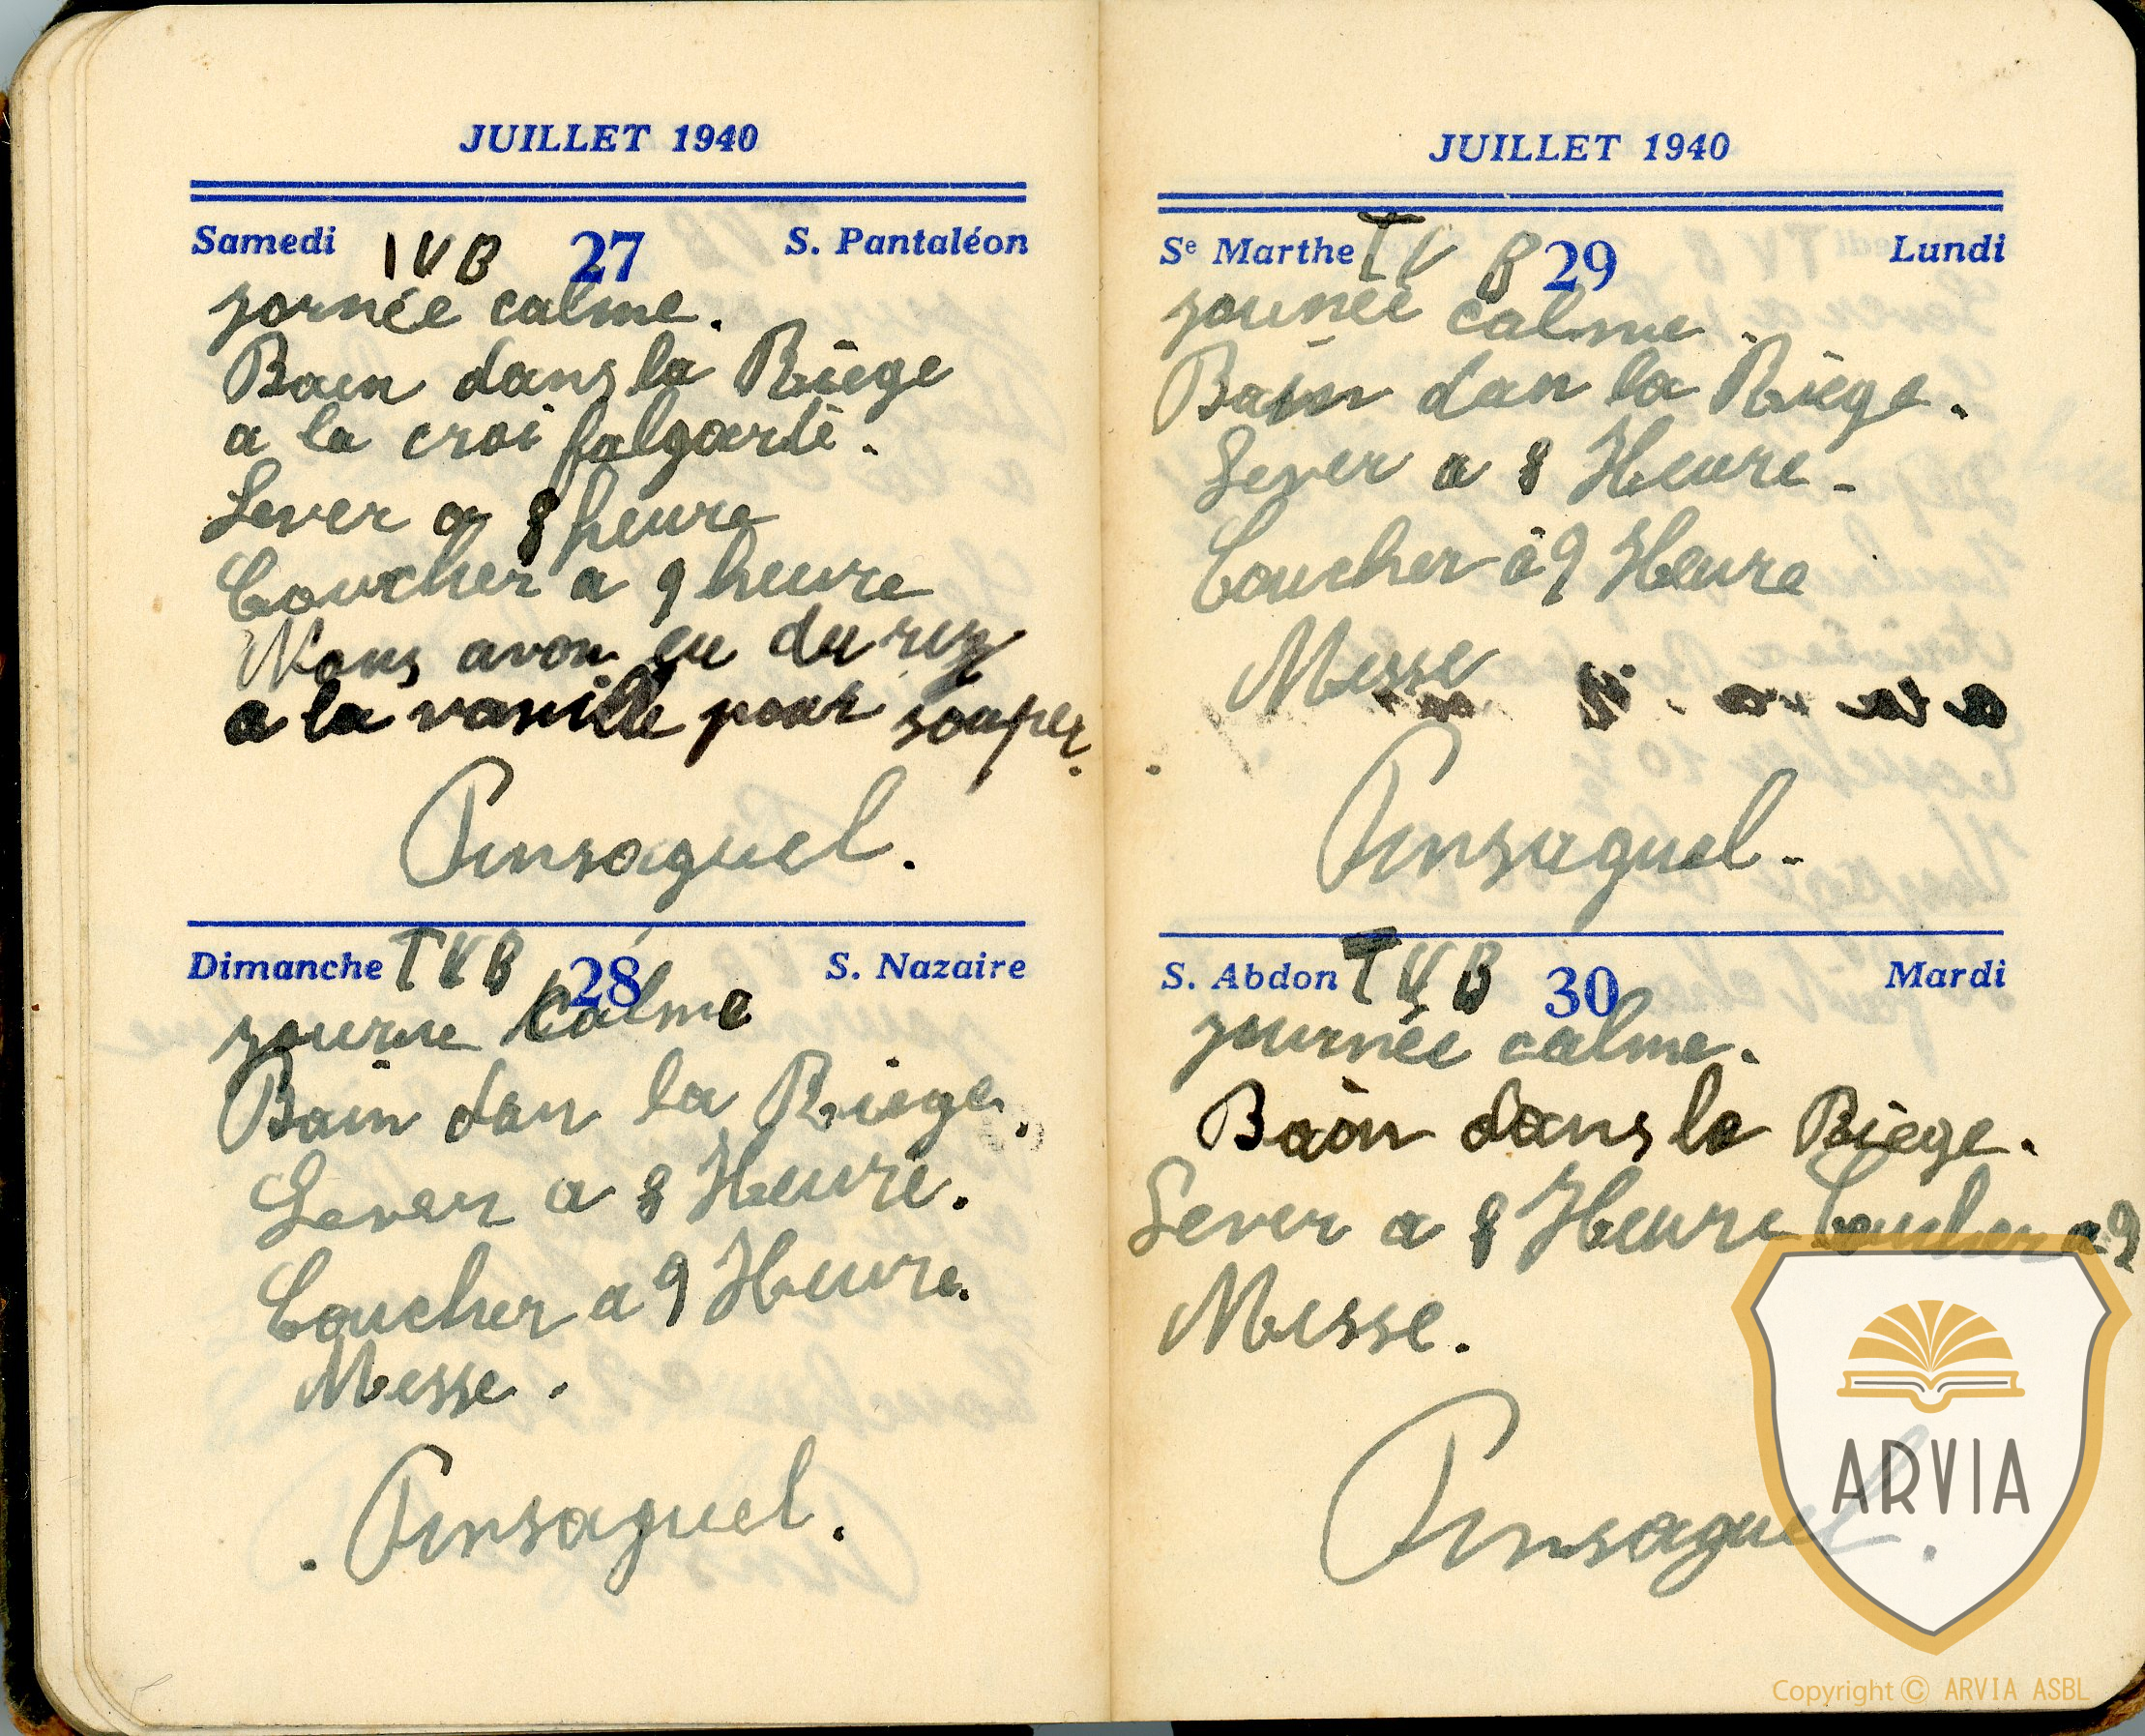 JUILLET 1940
Samedi TVB 27 S. Pantaléon
jornée calme.
Bain dans la Riège
a la croi falgarde.
Lever a 8 heure
Coucher a 9 heure
Nous avon eu du riz
a la vanille pour souper.
Pinsaguel.
Dimanche TVB 28 S. Nazaire
journe calme
Bain dan la Riege.
Lever a 8 Heure.
Coucher a 9 Heure.
Messe.
Pinsaguel.
JUILLET 1940
Sᵉ Marthe TVB 29 Lundi
journée calme.
Bain dan la Riège.
Lever a 8 Heure.
Coucher à 9 Heure
Messe
Pinsaguel.
S. Abdon TVB 30 Mardi
journée calme.
Bain dans la Riège.
Lever a 8 Heure Coucher a 9
Messe.
Pinsaguel.
ARVIA
Copyright © ARVIA ASBL